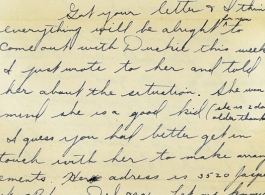 Got your letter & I think
everything will be alright to
for you
come out with Duskie this week
I just wrote to her and told
her about the situation. She won
mind she is a good kid (she is 2 da
older than
I guess you had better get in
touch with her to make arran
ements. Her adress is 3520